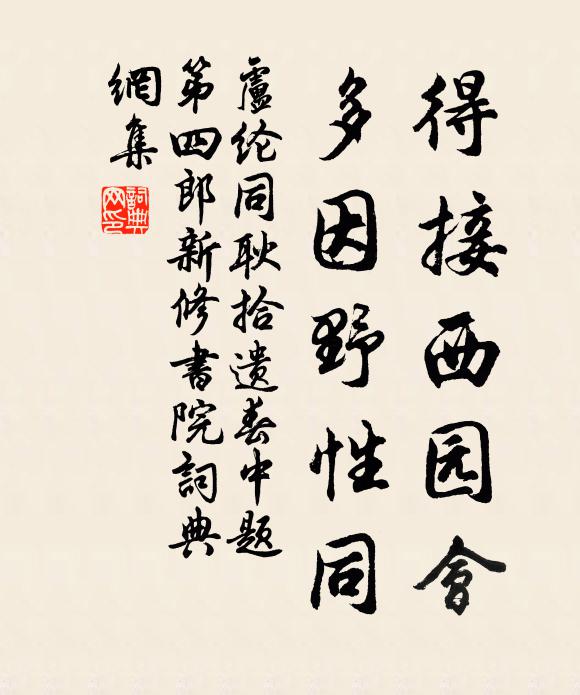 得接西园會
多因野性同
盧纶同耿拾遗春中题
第四郎新修書院詞典
網集
詞典
网印